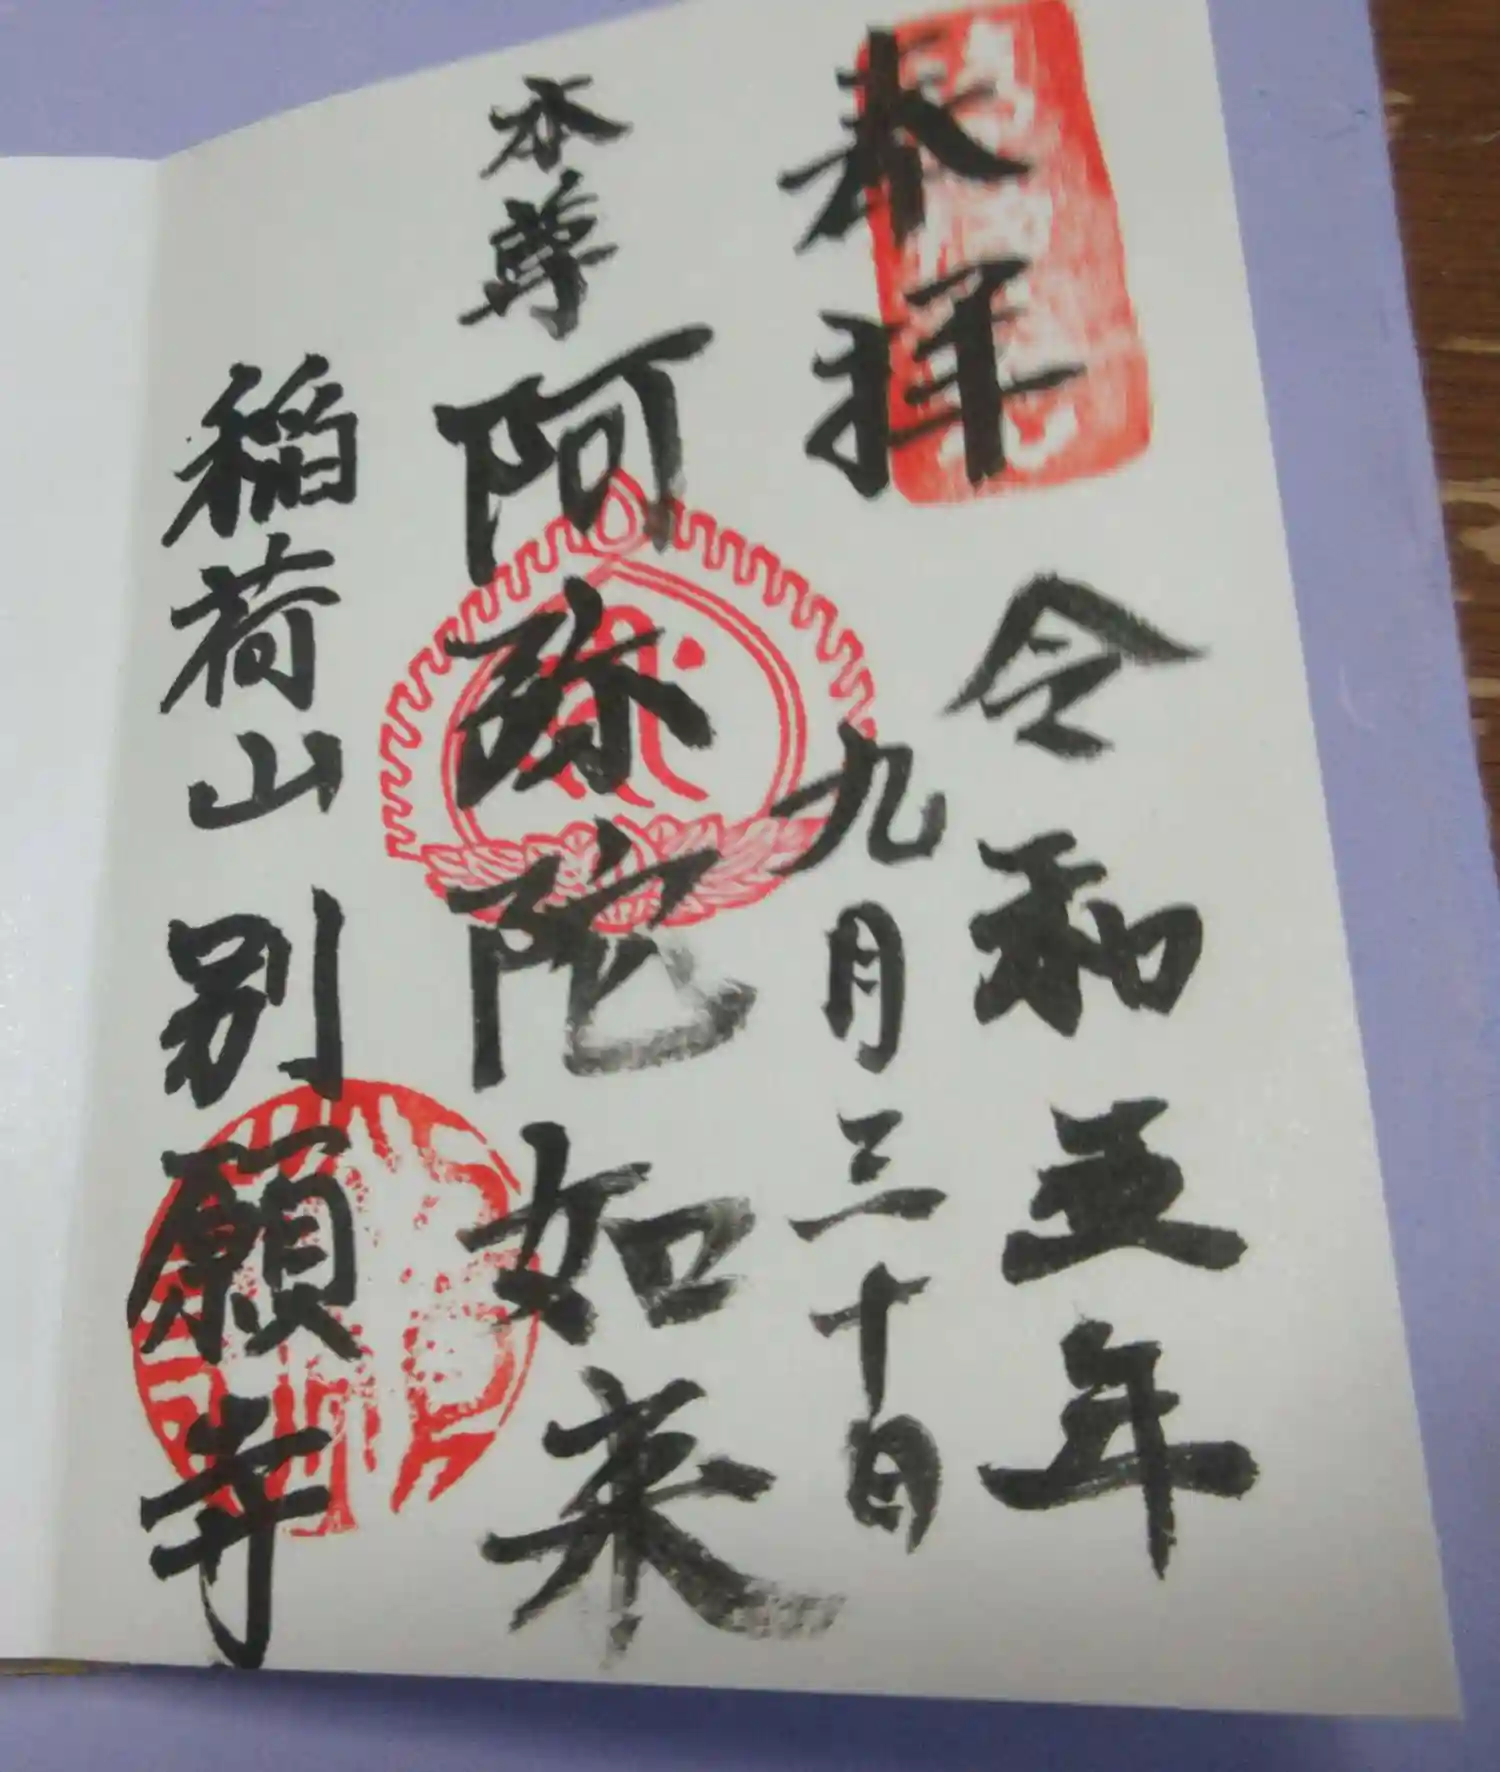 奉拝
令和五年
九月三十日
本尊
阿弥陀如来
稲荷山別願寺